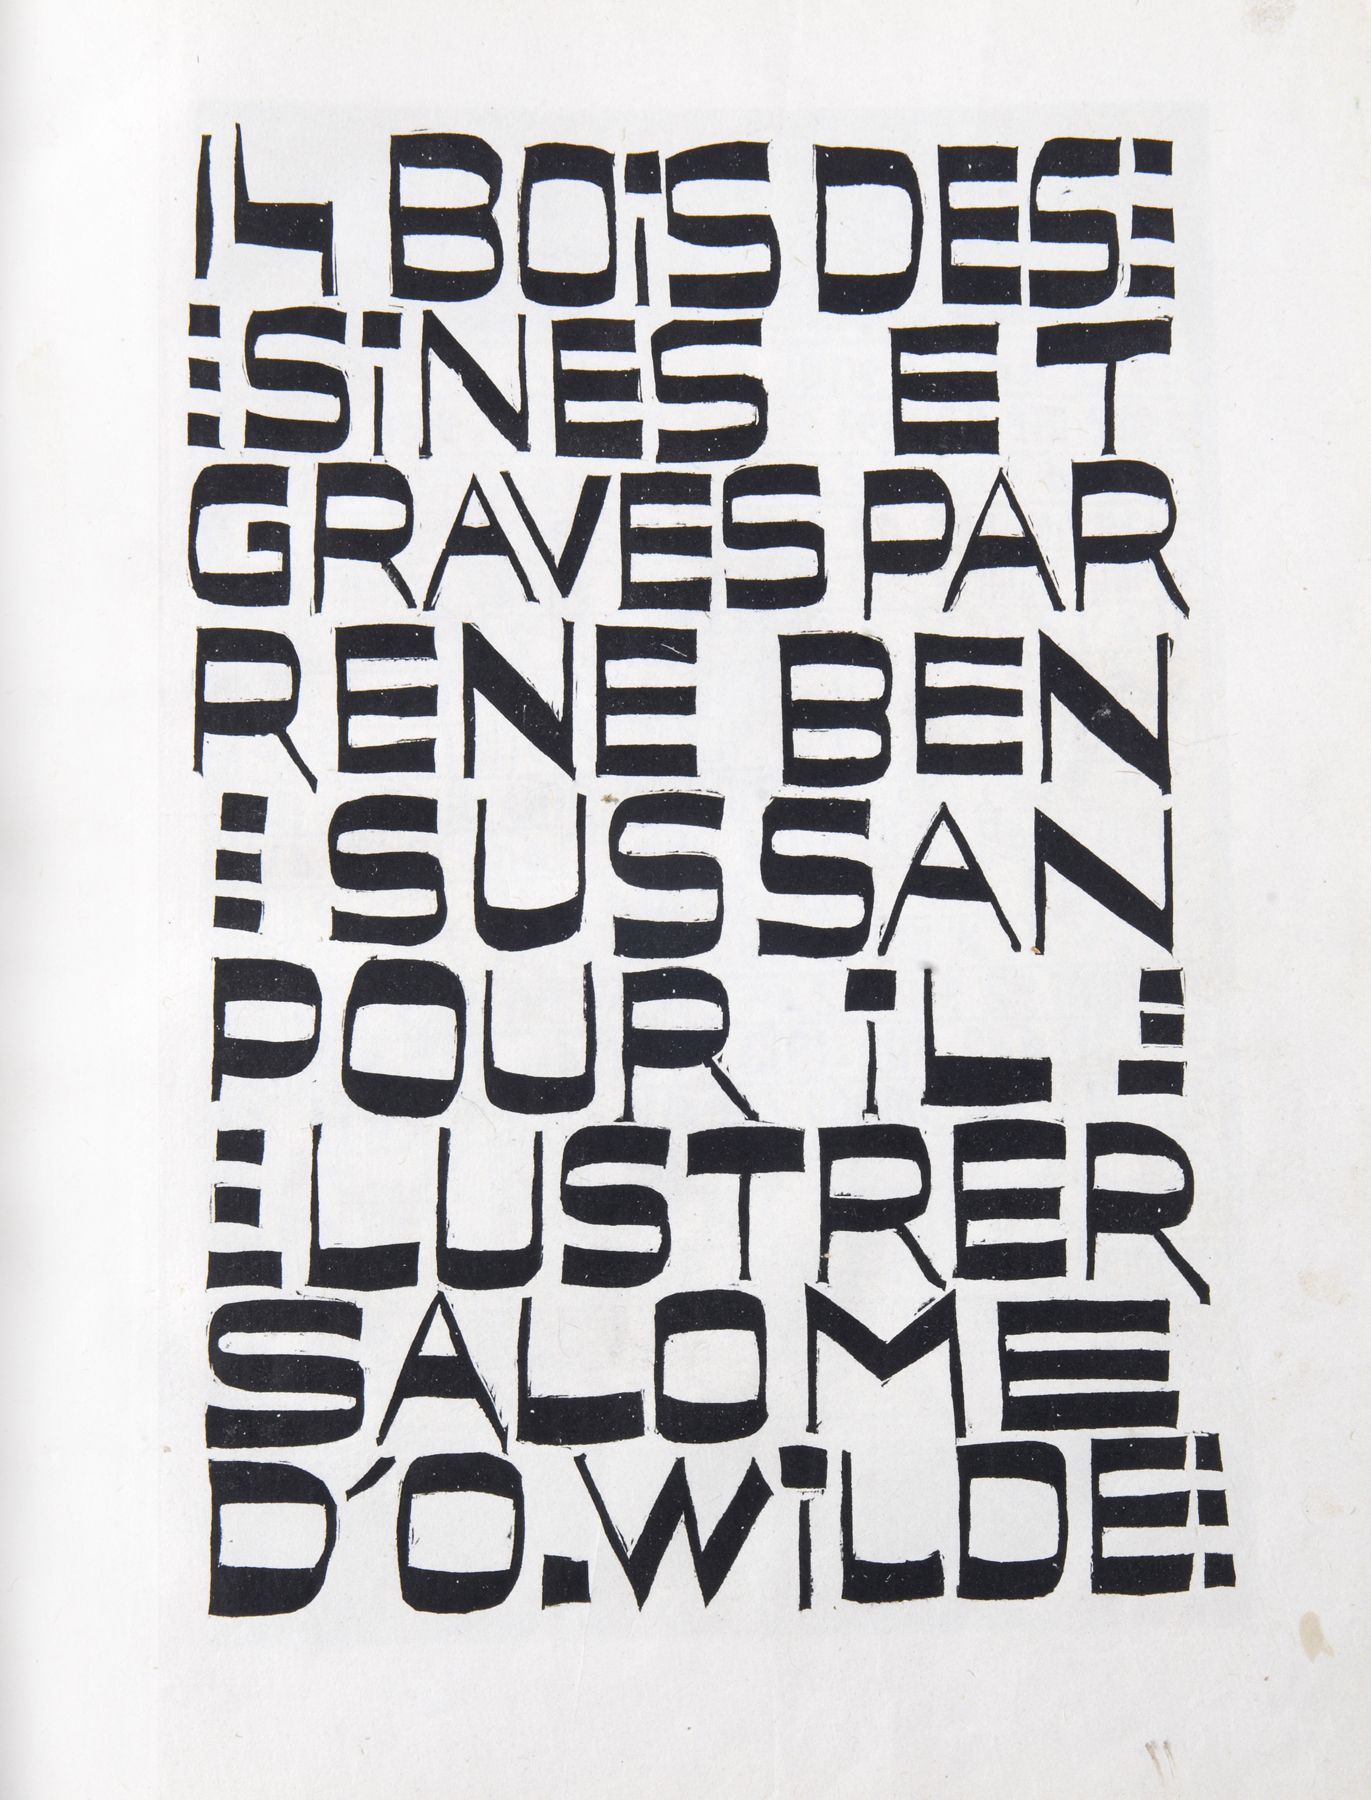 14 BOiS DES⁝
⁝SiNES ET
GRAVES PAR
RENE BEN
⁝ SUSSAN
POUR iL ⁝
⁝LUSTRER
SALOME
D'O.WiLDE⁝